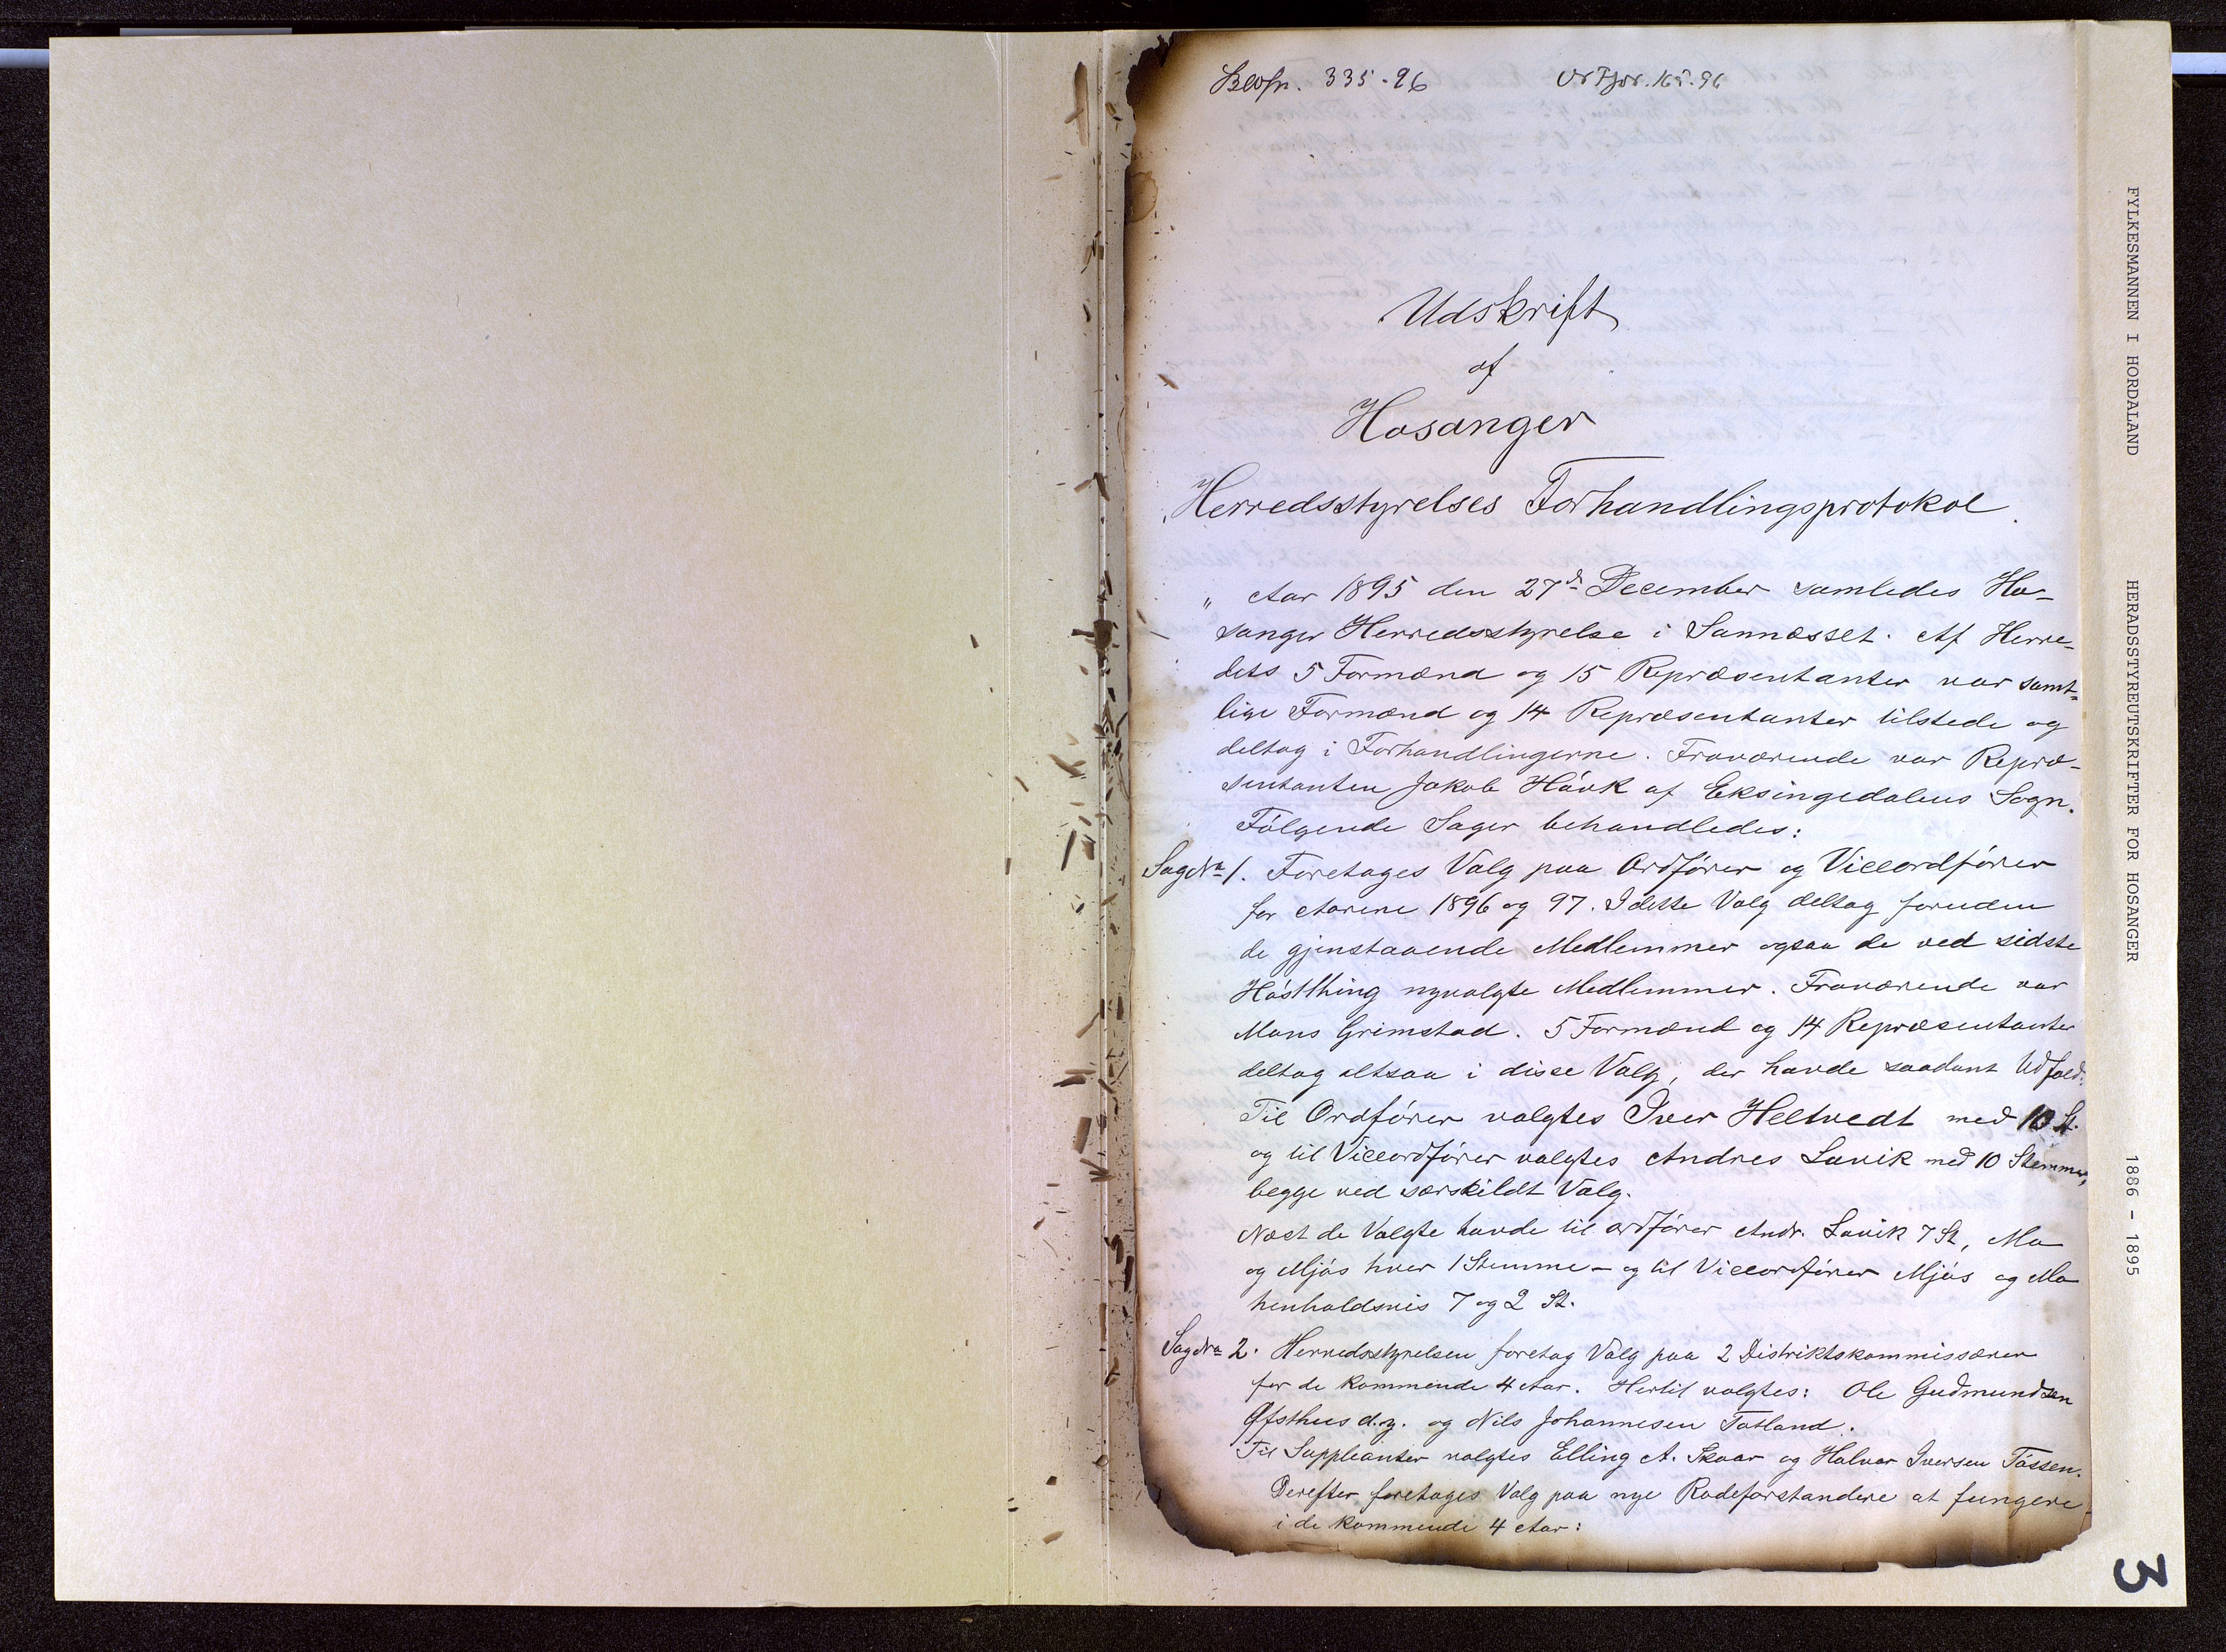 335-96
Udskrift
af
Hosanger
Herredsstyrelses Forhandlingsprotokol.
„ Aar 1895 den 27d December samledes Ho-
sanger Herredsstyrelse i Sannesset. Af Herre-
dets 5 Formænd og 15 Repræsentanter var samt-
lige Formænd og 14 Repræsentanter tilstede og
deltog i Forhandlingerne. Fraværende var Repræ-
sentanten Jakob Høvik af Eksingedalens Sogn.
Følgende Sager behandledes:
Sag No 1. Foretages Valg paa Ordfører og Viceordfører
for Aarene 1896 og 97. I dette Valg deltog foruden
de gjenstaaende Medlemmer ogsaa de ved sidste
Høstthing nyvalgte Medlemmer. Fraværende var
Mons Grimstad. 5 Formænd og 14 Repræsentanter
deltog altsaa i disse Valg, der havde saadant Udfald:
Til Ordfører valgtes Iver Heltvedt med 10 St.
og til Viceordfører valgtes Andres Lavik med 10 Stemmer,
begge ved særskildt Valg.
Næst de Valgte havde til ordfører Andr. Lavik 7 St, Mo
og Mjøs hver 1 Stemme - og til Viceordfører Mjøs og Mo
henholdsvis 7 og 2 St.
Sag No 2. Herredsstyrelsen foretog Valg paa 2 Distriktskommissærer
for de kommende 4 Aar. Hertil valgtes: Ole Gudmundsen
Øfsthus d.y. og Nils Johannesen Totland.
Til Suppleanter valgtes Elling A. Skaar og Halvor Iversen Tøssen.
Derefter foretages Valg paa nye Rodeforstandere at fungere
i de kommende 4 Aar:
FYLKESMANNEN I HORDALAND HERADSSTYREUTSKRIFTER FOR HOSANGER 1886 - 1895
3